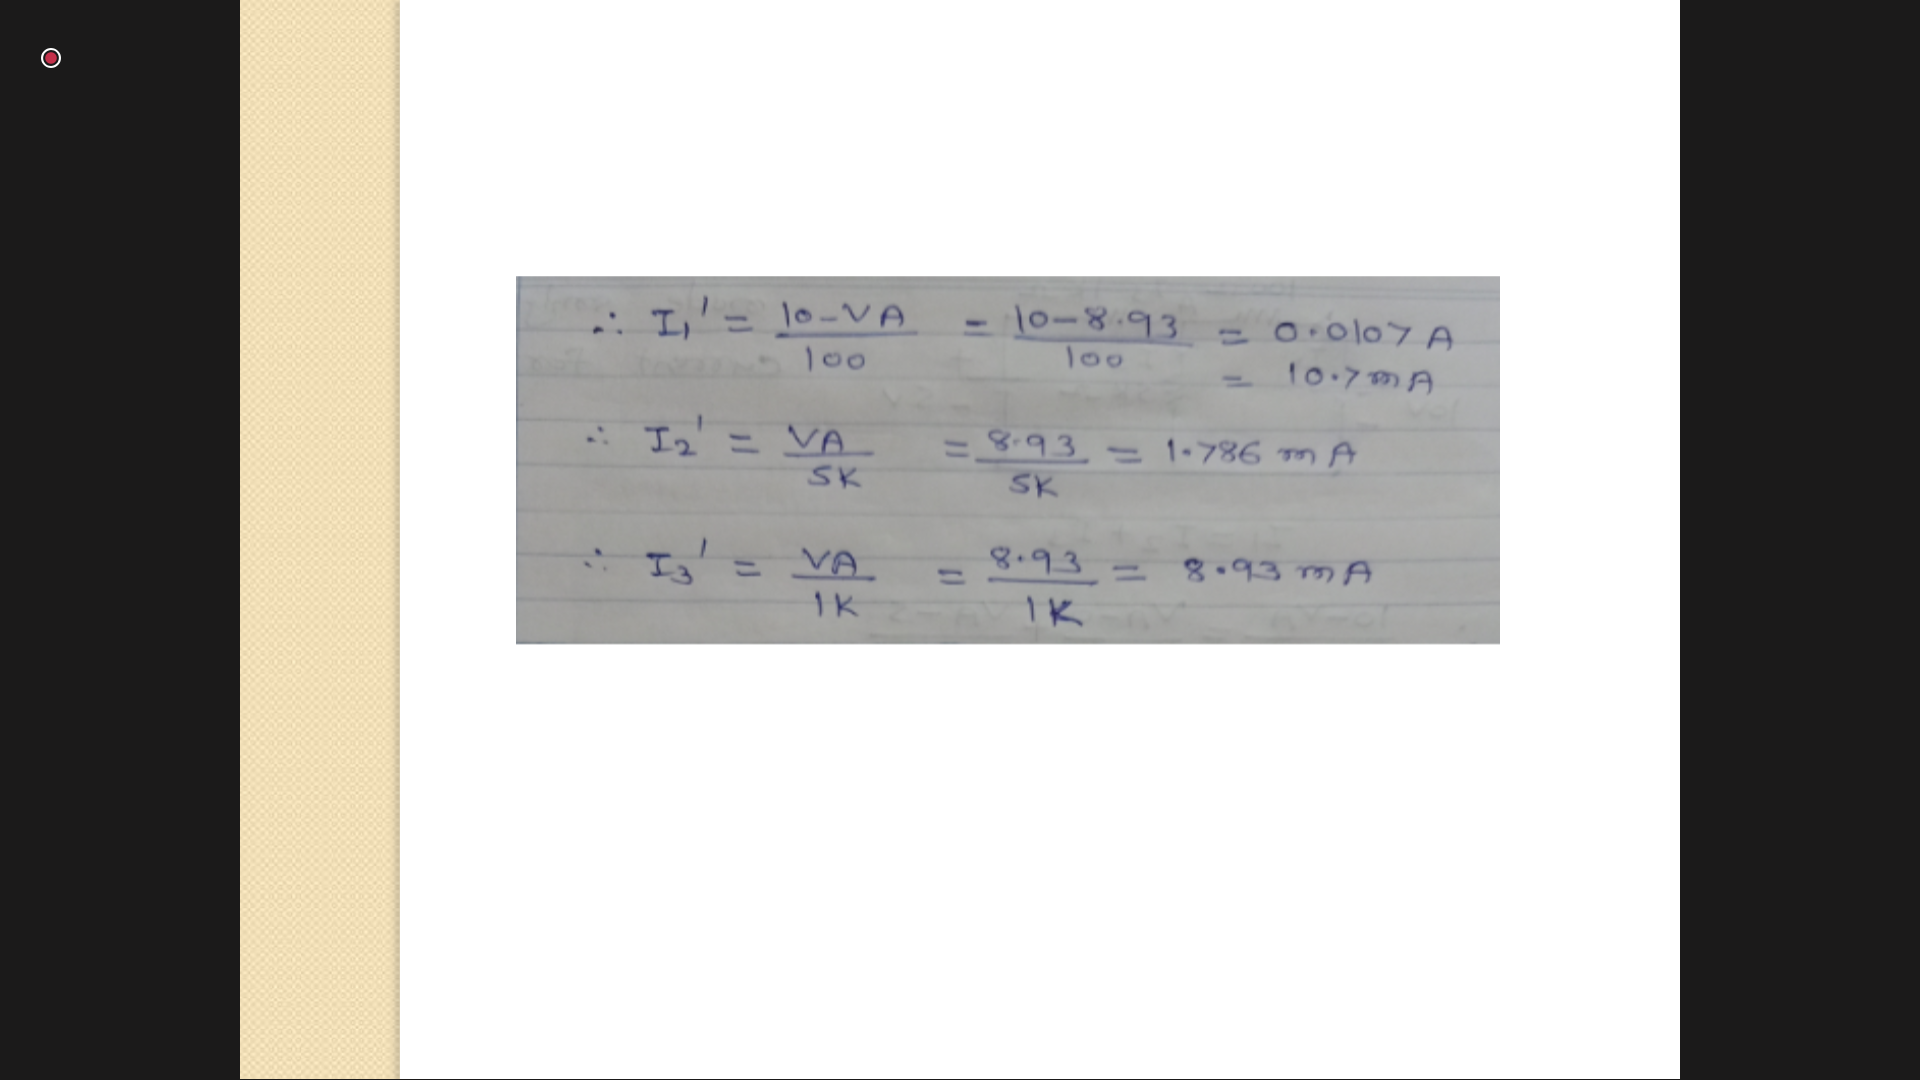 ∴ I₁' = 10-VA / 100 = 10-8.93 / 100 = 0.0107 A
= 10.7 mA
∴ I₂' = VA / 5K = 8.93 / 5K = 1.786 mA
∴ I₃' = VA / 1K = 8.93 / 1K = 8.93 mA